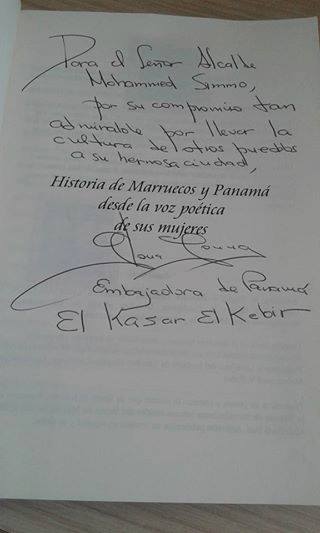 Para el Señor Alcalde
Mohammed Simmo,
por su compromiso tan
admirable por llevar la
cultura de otros pueblos
a su hermosa ciudad,
Historia de Marruecos y Panamá
desde la voz poética
de sus mujeres
Embajadora de Panamá
El Kasar El Kebir